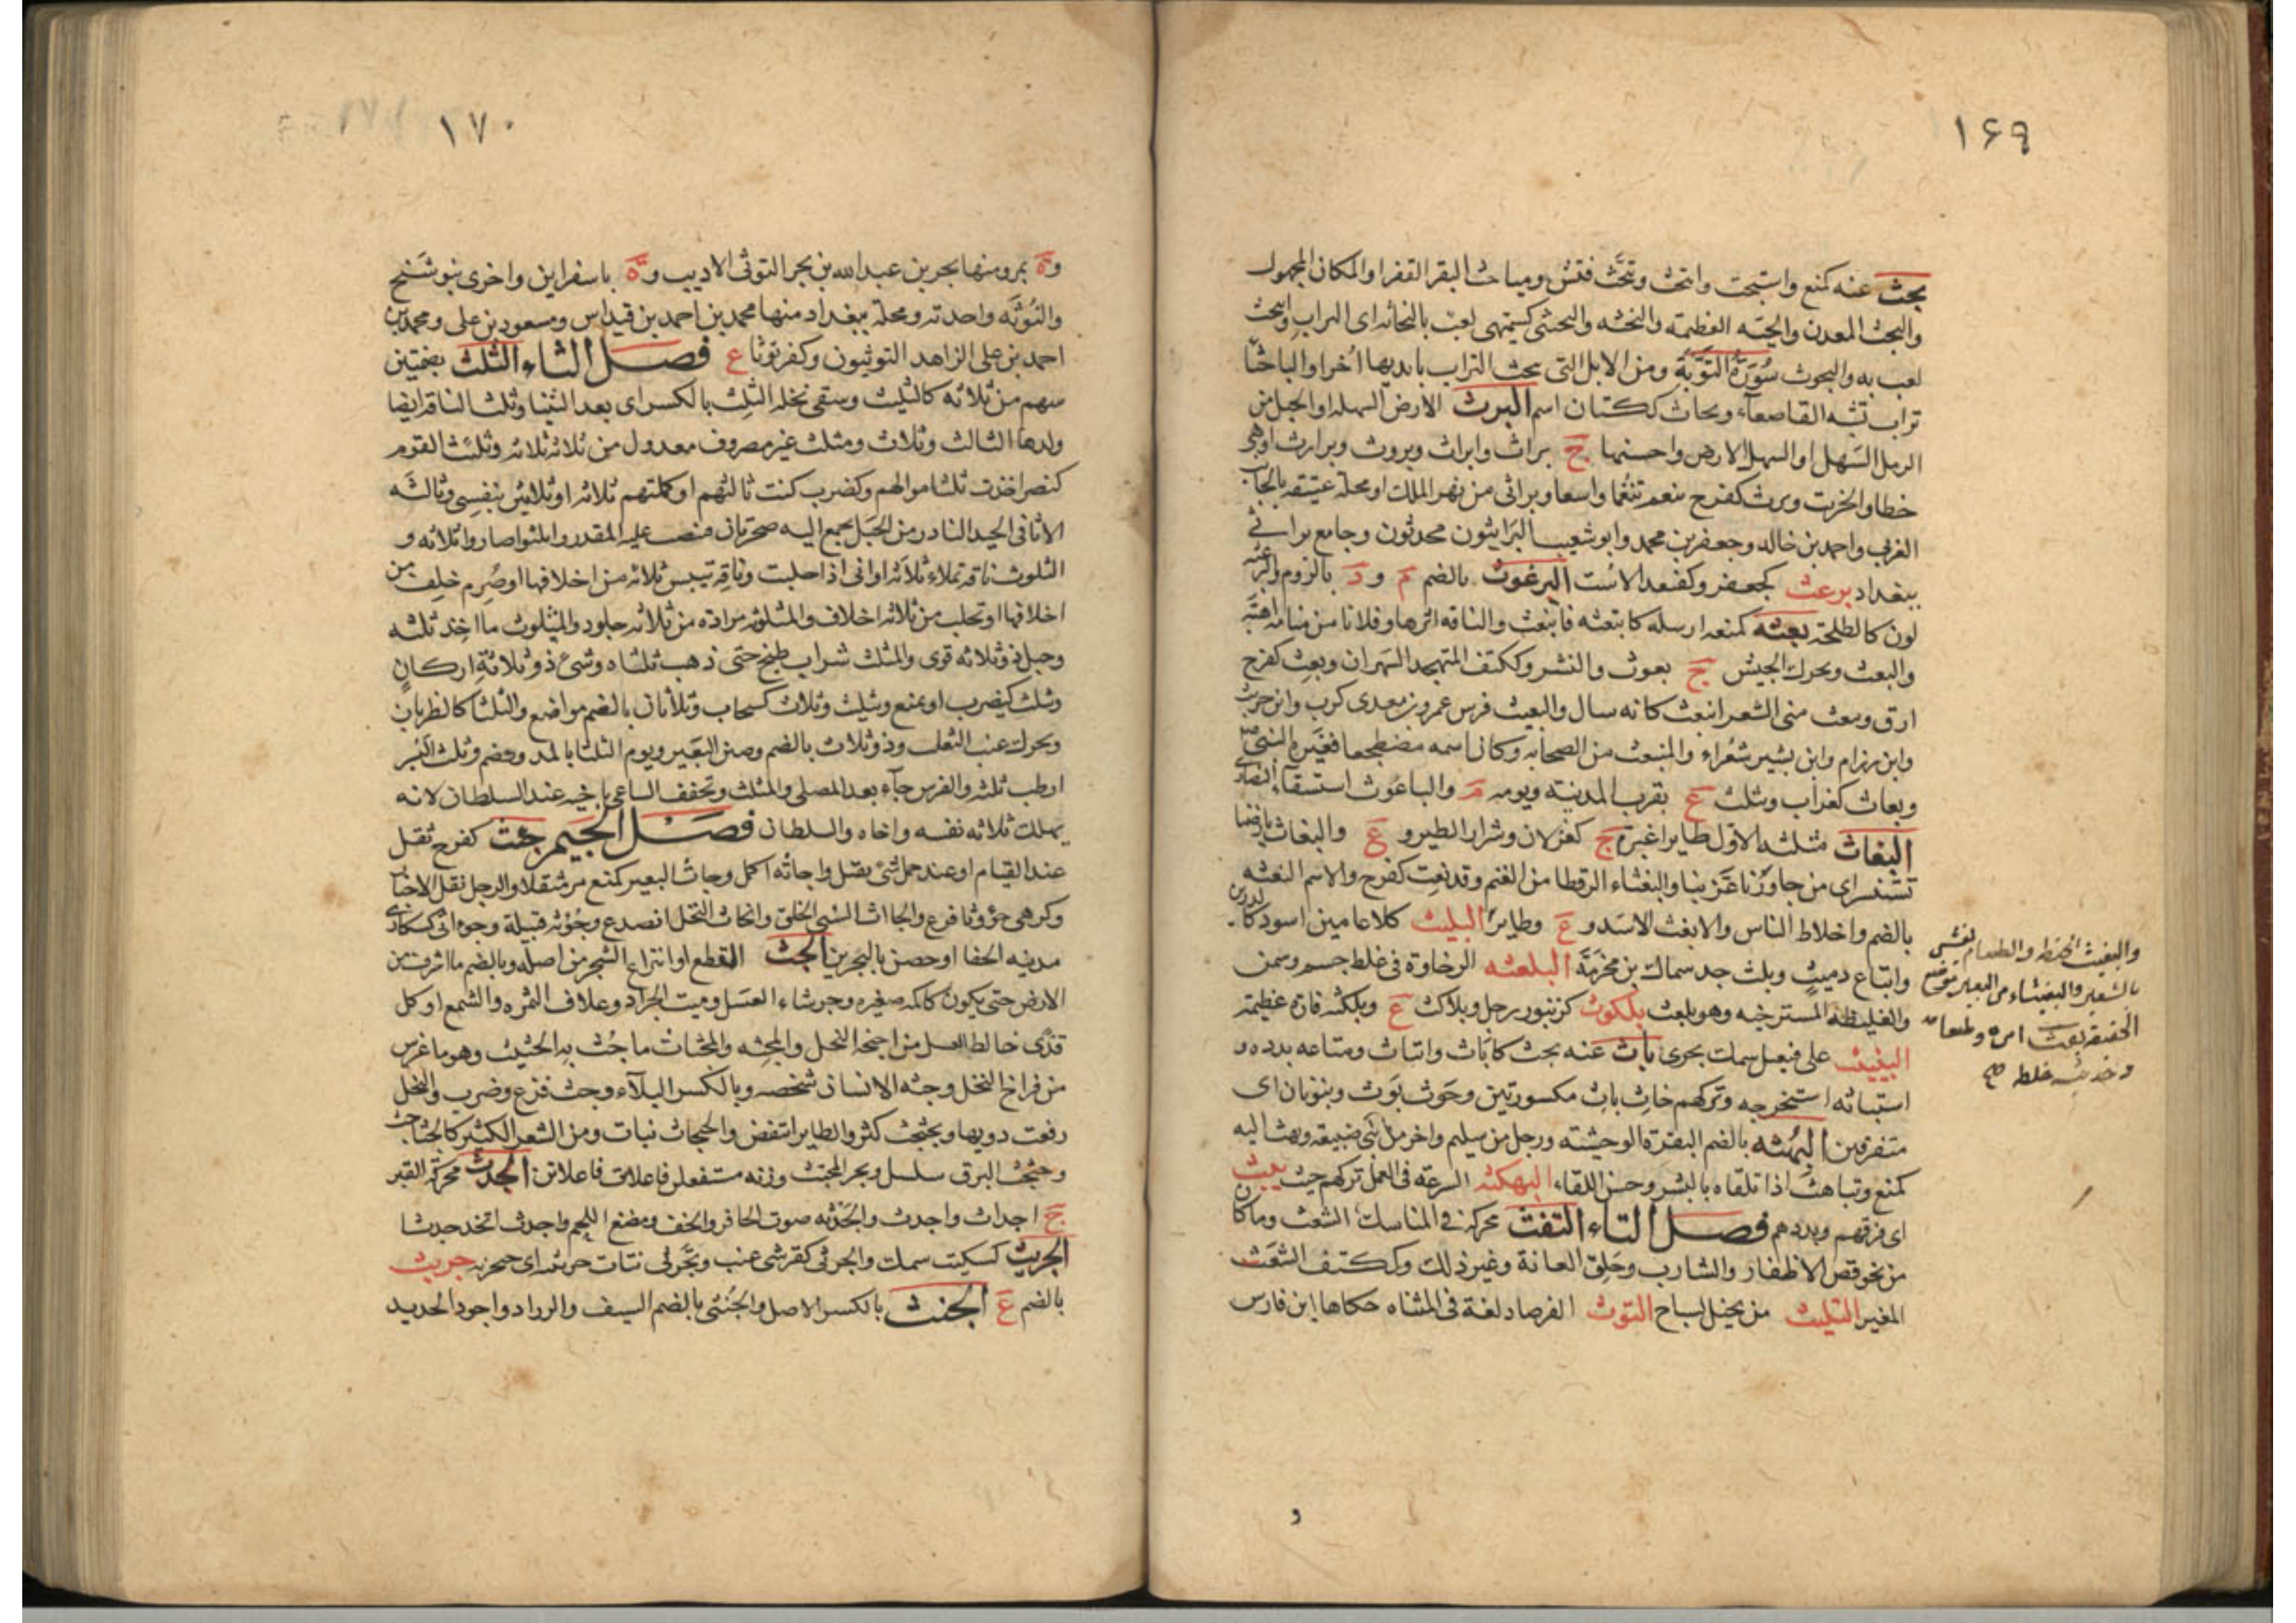 ١۶٩
بحث عنه كمنع واستبحث وانبحث وتبحّث فتش ومباحث البقر القفر او المكان المجهول
والبحث المعدن والحيّة العظيمة والبحثه والبحثى كسميهى لعب بالبحاثه اى التراب وابتحث
لعب به والبحوث سُورَةُ التَّوبَة ومن الابل التى تبحث التراب بايديها اُخرا والباحثا
تراب يشبه القاصعآء وبحاث ككتان اسم البرث الارض السهله او الجبل من
الرمل السّهل او السهل الارض واحسنها ج براث وابراث وبروث وبرارث او هى
خطا والخرت وبرث كفرح تنعم تنعما واسعا وبراثى من نهر الملك او محلة عتيقه بالجانب
الغربى واحمد بن خالد وجعفر بن محمد وابو شعيب البَرَاثيّون محدثون وجامع براثى
ببغداد برعث كجعفر وكقنفد الاست البرغوث بالضم م و د بالروم والبرغثه
لون كالطلحة بعثه كمنعه ارسله كابتعثه فانبعث والناقه اثارها وفلانا من منامه اهبّه
والبعث ويحرك الجيش ج بعوث والنشر وككتف المتهجد السهران وبعث كفرح
ارق وبعث منى الشعر انبعث كانه سال والبعيث فرس عمرو بن معدى كرب وابن حريث
وابن رزام وابن بشير شعُراء والمنبعث من الصحابه وكان اسمه مضطجعا فغيّره النبى
وبعاث كغراب ويثلث ع بقرب المدينه ويومه م والباعُوث استسقآء النصارى
البغاث مثلثه الاول طاير اغبر ج كغزلان وشرار الطير و ع والبغاث بارضنا
تستنسر اى من جاورنا عَزّ بنا والبغثاء الرقطا من الغنم وقد بغث كفرح والاسم البغثه
بالضم واخلاط الناس والابغث الاسَد و ع وطاير البليث كلا عامين اسود كالدرين
واتباع دميث وبلث جد سماك بن مخرَمَة البلعثه الرخاوة فى غلظ جسم وسمن
والغليظه المسترخيه وهو بلعث بلكوث كزنبور رجل وبلاكث ع وبلكثه قارة عظيمة
البينيث على فيعيل سمك بحرى باث عنه بحث كاباث وابتاث ومتاعه بدده و
استباثه استخرجه وتركهم حاثِ باثِ مكسورتين وحَوث بَوث وينونان اى
متفرقين البُهثه بالضم البقرة الوحشيه ورجل من سليم واخر من بنى ضبيعة وبهث اليه
كمنع وتباهث اذا تلقاه بالبشر وحسن اللقاء البهكثه السرعة فى العمل تركهم حيث بيث
اى فرقهم وبددهم فصل التاء التفث محركة فى المناسك الشعث وما كان
من نحو قص الاظفار والشارب وحلق العانة وغير ذلك وككتف الشعَث
المغبر التليث من نجيل السباخ التوث الفرصاد لغة فى المثناه حكاها ابن فارس
والبغيث الحنطه والطعام يغش
بالشعير والبغثاء من البعير موضع
الحقيبة
خلط صح
و
١٧٠
وة بمرو منها بحر بن عبد الله بن بحر التوثى الاديب وة باسفراين واخرى ببوشَنج
والتُوثَه واحدته ومحلة ببغداد منها محمد بن احمد بن قيداس ومسعود بن على ومحمد بن
احمد بن على الزاهد التوثيون وكفرتوثا ع فصل الثاء الثلث بضمتين
سهم من ثلاثه كالثليث وسقى نخله الثلِث بالكسر اى بعد الثنيا وثلث الناقة ايضا
ولدها الثالث وثلاث ومثلث غير مصروف معدول من ثلاثه ثلاثه وثلث القوم
كنصر اخذت ثلث اموالهم وكضرب كنت ثالثهم او كملتهم ثلاثه او ثلاثين بنفسى وثالثه
الاثافى الحيد النادر من الجبَل يجمع اليه صخرتان فينصب عليه القدر واثلثوا صاروا ثلاثه و
الثلوث ناقة تملاء ثلاثَة اوانى اذا حلبت وناقة تيبس ثلاثه من اخلافها او صُرِم خلف من
اخلافها او تحلب من ثلاثه اخلاف والمثلوثه مزاده من ثلاثه جلود والمثلوث ما اخذ ثلثه
وحبل ذو ثلاثه قوى والمثلث شراب طبخ حتى ذهب ثلثاه وشئ ذو ثلاثةِ اركانٍ
وثلث كيضرب او يمنع وثليث وثلاث كسحاب وثلاثان بالضم مواضع والثلثا كالظربان
ويحرك عنب الثعلب وذو ثلاث بالضم وضين البَعير ويوم الثلثا بالمد ويضم وثلث البُسر
ارطب ثلثه والفرس جآء بعد المصلى والمثلث ويخفف الساعى باخيه عند السلطان لانه
يهلك ثلاثه نفسه واخاه والسلطان فصَل الجَيم جئث كفرح ثقل
عند القيام او عند حمل شئ يثقل واجاثه احمل وجاث البعير كمنع مر مثقلا والرجل نقل الاخبار
وكزهى جؤوثا فزع والجااث السَيى الخلق وانجاث النخل انصدع وجُؤثه قبيلة وجواثى كسكارى
مدينه الخط او حصن بالبحرين الجث القطع او انتزاع الشجر من اصله وبالضم ما اشرف من
الارض حتى يكون كاكمه صغيره وخرشاء العسَل وميت الجراد وغلاف الثمره والشمع او كل
قذى خالط العسل من اجنحة النحل والمجثه والمجثات ما جُث بهِ الجثيث وهو ما غرس
من فراخ النخل وجثه الانسان شخصه وبالكسر البلآء وجث فزع وضرب والنحل
رفعت دويها وجثجث كثر والطاير انتفض والجثجاث نبات ومن الشعر الكثير كالجثاجث
وجثجث البرق سلسل وبحر المجتث وزنه مستفعلن فاعلاتن فاعلاتن الجدث محركة القبر
ج اجداث واجدث والجَدثه صوت الحافر والخف ومضغ اللحم واجدث اتخذ جدثا
الجريث كسكيت سمك والجرثى كقرشى عنب
بالضم ع الجنث بالكسر الاصل والجُنثى بالضم السيف والزراد واجود الحديد